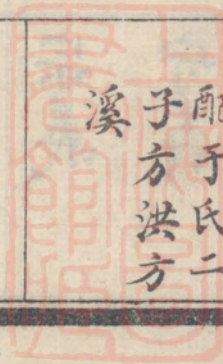 配于氏二
子方洪方
溪